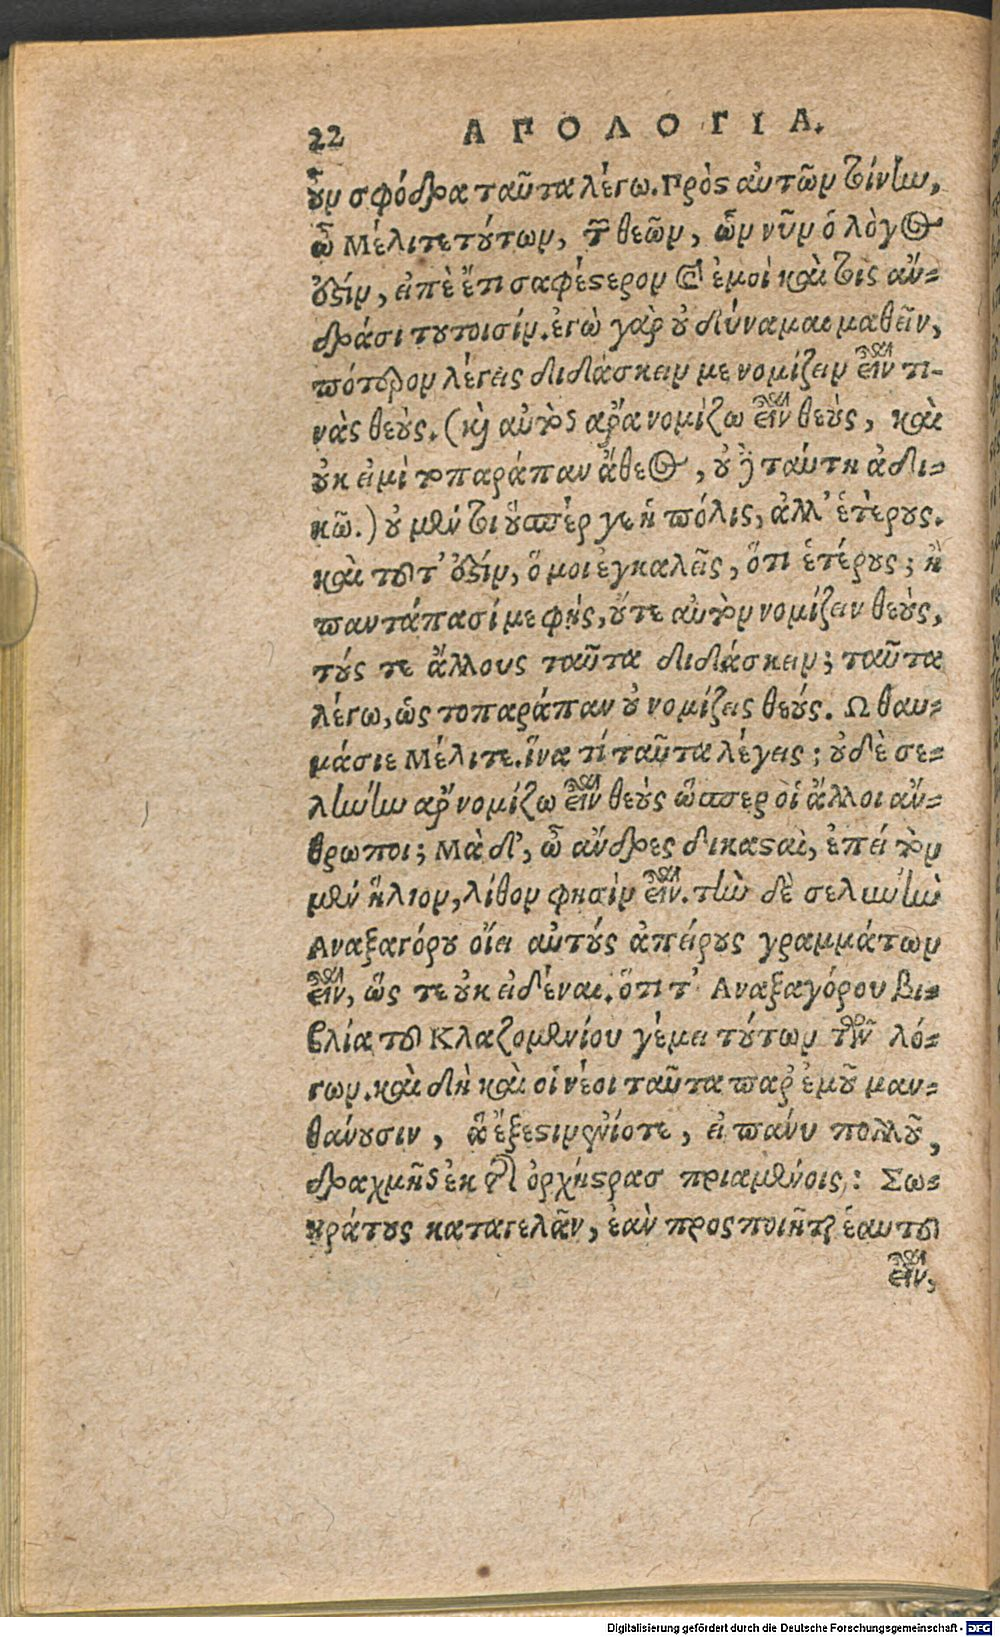 22 ΑΠΟΛΟΓΙΑ.
οὖν σφόδρα ταῦτα λέγω. Πρὸς αὐτῶν τοίνυν,
ὦ Μέλιτε τούτων, τῶν θεῶν, ὧν νῦν ὁ λόγος
ἐστὶν, εἰπὲ ἔτι σαφέστερον καὶ ἐμοὶ καὶ τοῖς ἀν-
δράσι τουτοισίν. ἐγὼ γὰρ οὐ δύναμαι μαθεῖν,
πότερον λέγεις διδάσκειν με νομίζειν εἶναι τι-
νὰς θεούς. (καὶ αὐτὸς ἄρα νομίζω εἶναι θεοὺς, καὶ
οὐκ εἰμὶ τὸ παράπαν ἄθεος, οὐδὲ ταύτῃ ἀδι-
κῶ.) οὐ μέντοι οὕσπέρ γε ἡ πόλις, ἀλλ' ἑτέρους.
καὶ τοῦτ' ἐστὶν, ὅ μοι ἐγκαλεῖς, ὅτι ἑτέρους; ἢ
παντάπασί με φῂς, οὔτε αὐτὸν νομίζειν θεοὺς,
τούς τε ἄλλους ταῦτα διδάσκειν; ταῦτα
λέγω, ὡς τοπαράπαν οὐ νομίζεις θεούς. Ω θαυ-
μάσιε Μέλιτε. ἵνα τί ταῦτα λέγεις; οὐδὲ σε-
λήνην ἄρα νομίζω εἶναι θεοὺς ὥσπερ οἱ ἄλλοι ἄν-
θρωποι; Μὰ δί', ὦ ἄνδρες δικασταὶ, ἐπεί τὸν
μὲν ἥλιον, λίθον φησὶν εἶναι. τὴν δὲ σελήνην
Αναξαγόρου οἴει αὐτούς ἀπείρους γραμμάτων
εἶναι, ὥς τε οὐκ εἰδέναι. ὅτι τ' Αναξαγόρου βι-
βλία τοῦ Κλαζομενίου γέμει τούτων τῶν λό-
γων. καὶ δὴ καὶ οἱ νέοι ταῦτα παρ' ἐμοῦ μαν-
θάνουσιν, ἃ ἔξεστιν ἐνίοτε, εἰ πάνυ πολλοῦ,
δραχμῆς ἐκ τῆς ὀρχήστρας πριαμένοις: Σω-
κράτους καταγελᾶν, ἐὰν προσποιῆται ἑαυτοῦ
εἶναι,
Digitalisierung gefördert durch die Deutsche Forschungsgemeinschaft - DFG